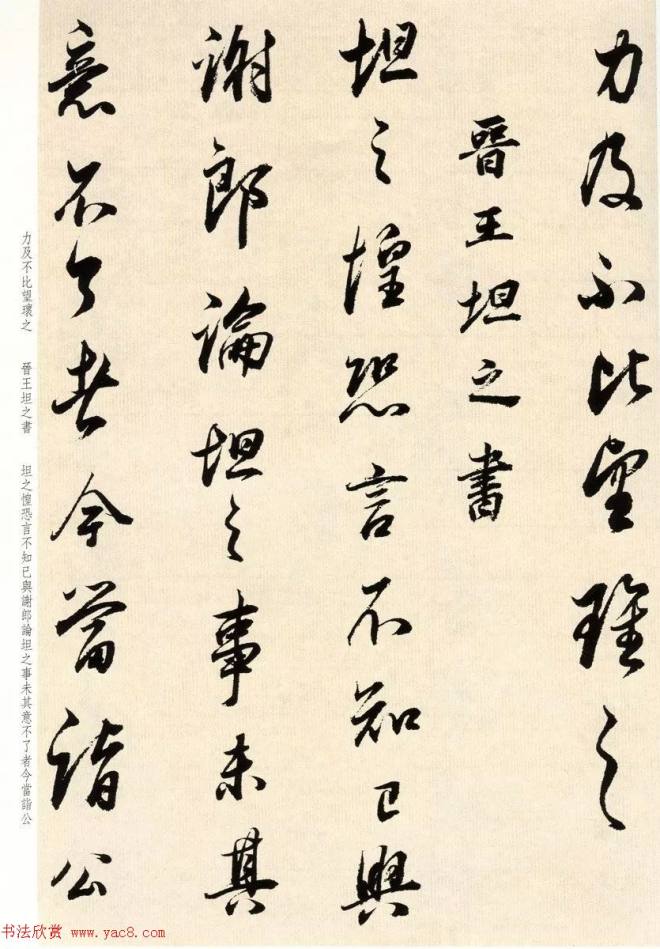 力及不比望瓌之
晉王坦之書
坦之惶恐言不知已與
謝郎論坦之事未其
意不了者今當詣公
力及不比望瓌之　晉王坦之書　坦之惶恐言不知已與謝郎論坦之事未其意不了者今當詣公
书法欣赏 www.yac8.com